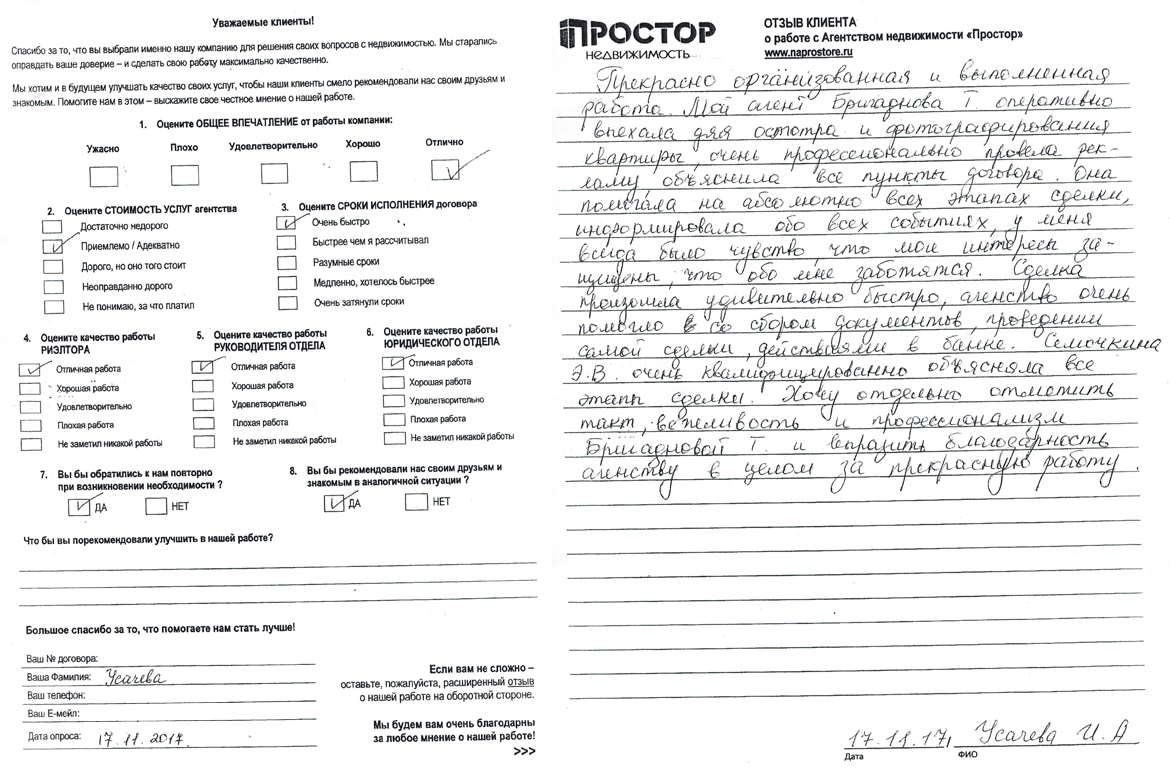 Уважаемые клиенты!
Спасибо за то, что вы выбрали именно нашу компанию для решения своих вопросов с недвижимостью. Мы старались
оправдать ваше доверие – и сделать свою работу максимально качественно.
Мы хотим и в будущем улучшать качество своих услуг, чтобы наши клиенты смело рекомендовали нас своим друзьям и
знакомым. Помогите нам в этом – выскажите свое честное мнение о нашей работе.
1. Оцените ОБЩЕЕ ВПЕЧАТЛЕНИЕ от работы компании:
Ужасно Плохо Удовлетворительно Хорошо Отлично
2. Оцените СТОИМОСТЬ УСЛУГ агентства
Достаточно недорого
Приемлемо / Адекватно
Дорого, но оно того стоит
Неоправданно дорого
Не понимаю, за что платил
3. Оцените СРОКИ ИСПОЛНЕНИЯ договора
Очень быстро
Быстрее чем я рассчитывал
Разумные сроки
Медленно, хотелось быстрее
Очень затянули сроки
4. Оцените качество работы
РИЭЛТОРА
Отличная работа
Хорошая работа
Удовлетворительно
Плохая работа
Не заметил никакой работы
5. Оцените качество работы
РУКОВОДИТЕЛЯ ОТДЕЛА
Отличная работа
Хорошая работа
Удовлетворительно
Плохая работа
Не заметил никакой работы
6. Оцените качество работы
ЮРИДИЧЕСКОГО ОТДЕЛА
Отличная работа
Хорошая работа
Удовлетворительно
Плохая работа
Не заметил никакой работы
7. Вы бы обратились к нам повторно
при возникновении необходимости ?
ДА НЕТ
8. Вы бы рекомендовали нас своим друзьям и
знакомым в аналогичной ситуации ?
ДА НЕТ
Что бы вы порекомендовали улучшить в нашей работе?
Большое спасибо за то, что помогаете нам стать лучше!
Ваш № договора:
Ваша Фамилия: Усачева
Ваш телефон:
Ваш Е-мейл:
Дата опроса: 17.11.2017.
Если вам не сложно –
оставьте, пожалуйста, расширенный отзыв
о нашей работе на оборотной стороне.
Мы будем вам очень благодарны
за любое мнение о нашей работе!
>>>
ПРОСТОР
НЕДВИЖИМОСТЬ
ОТЗЫВ КЛИЕНТА
о работе с Агентством недвижимости «Простор»
www.naprostore.ru
Прекрасно организованная и выполненная
работа. Мой агент Бригаднова Т. оперативно
выехала для остотра и фотографирования
квартиры, очень профессионально провела рек-
ламу, объяснила все пункты договора. Она
помогала на абсолютно всех этапах сделки,
информировала обо всех событиях, у меня
всегда было чувство, что мои интересы за-
щищены, что обо мне заботятся. Сделка
произошла удивительно быстро, агенство очень
помогло в со сбором документов, проведении
самой сделки, действиями в банке. Семочкина
Э.В. очень квалифицированно объясняла все
этапы сделки. Хочу отдельно отметить
такт, вежливость и профессионализм
Бригадновой Т. и выразить благодарность
агенству в целом за прекрасную работу.
17.11.17, Усачева И.А
Дата ФИО